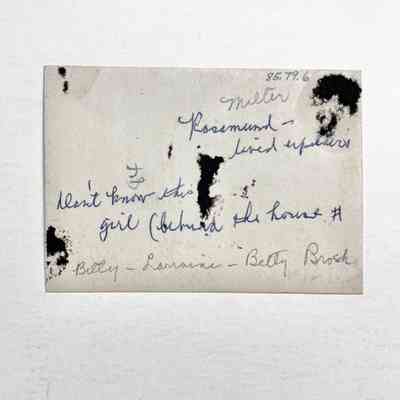 85.79.6
Milter
Rosemund -
lived upstairs
Don't know this
girl (behind the house #
Billy - Lorraine - Betty Brock